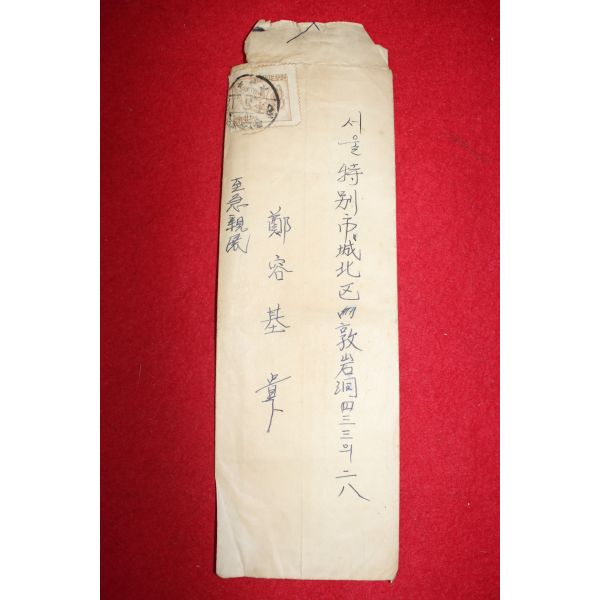 서울特別市城北区敦岩洞四三三의 二八
鄭容基
至急親展